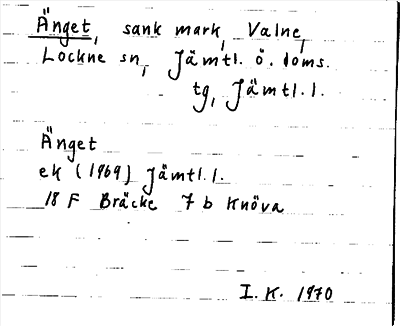 Änget, sank mark, Valne,
Lockne sn, Jämtl. ö. doms.
tg, Jämtl. l.
Änget
ek (1969) Jämtl. l.
18 F Bräcke 7 b Knöva
I. K. 1970